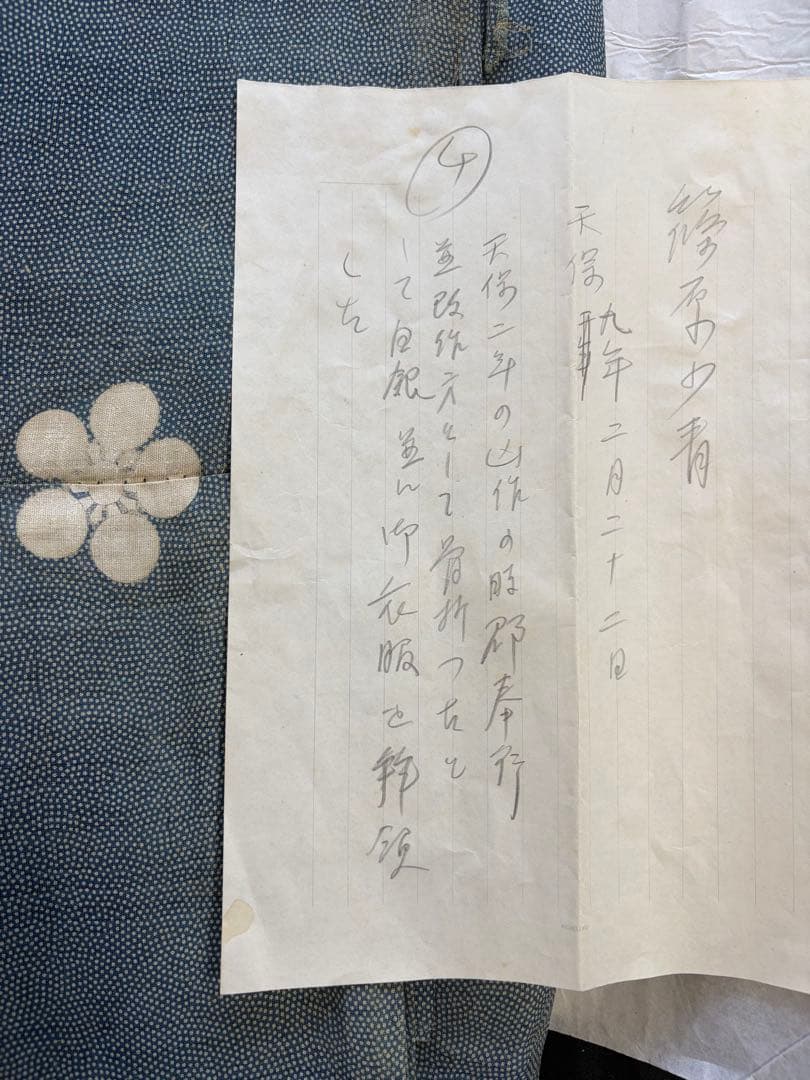 篠原
天保九年二月二十二日
4
天保二年の凶作の時郡奉行
並改作方として骨折つたと
して白銀並に御衣服を拝領
した